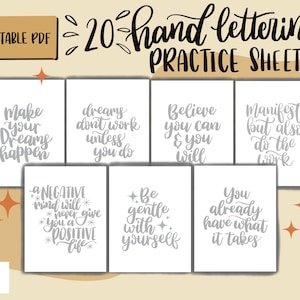 TABLE PDF
20 hand lettering
PRACTICE SHEET
Make
your
Dreams
happen
dreams
don't work
unless
you do
Believe
you can
& you
will
Manifest
but also
do the
work
a NEGATIVE
mind will
never give
you a
POSITIVE
life
Be
gentle
with
yourself
You
already
have what
it takes